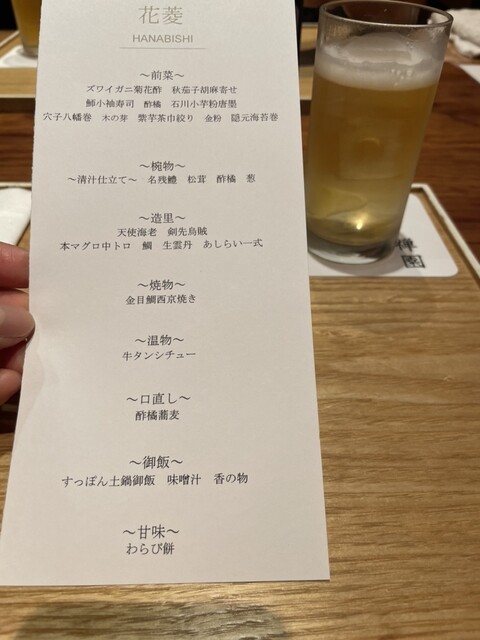 花菱
HANABISHI
～前菜～
ズワイガニ菊花酢　秋茄子胡麻寄せ
鰤小袖寿司　酢橘　石川小芋粉唐墨
穴子八幡巻　木の芽　紫芋茶巾絞り　金粉　隠元海苔巻
～椀物～
～清汁仕立て～　名残鱧　松茸　酢橘　葱
～造里～
天使海老　剣先烏賊
本マグロ中トロ　鯛　生雲丹　あしらい一式
～焼物～
金目鯛西京焼き
～温物～
牛タンシチュー
～口直し～
酢橘蕎麦
～御飯～
すっぽん土鍋御飯　味噌汁　香の物
～甘味～
わらび餅